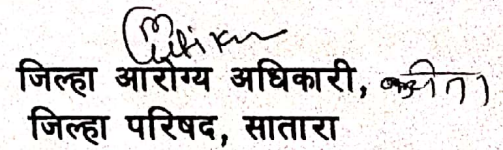 जिल्हा आरोग्य अधिकारी, करीता
जिल्हा परिषद, सातारा